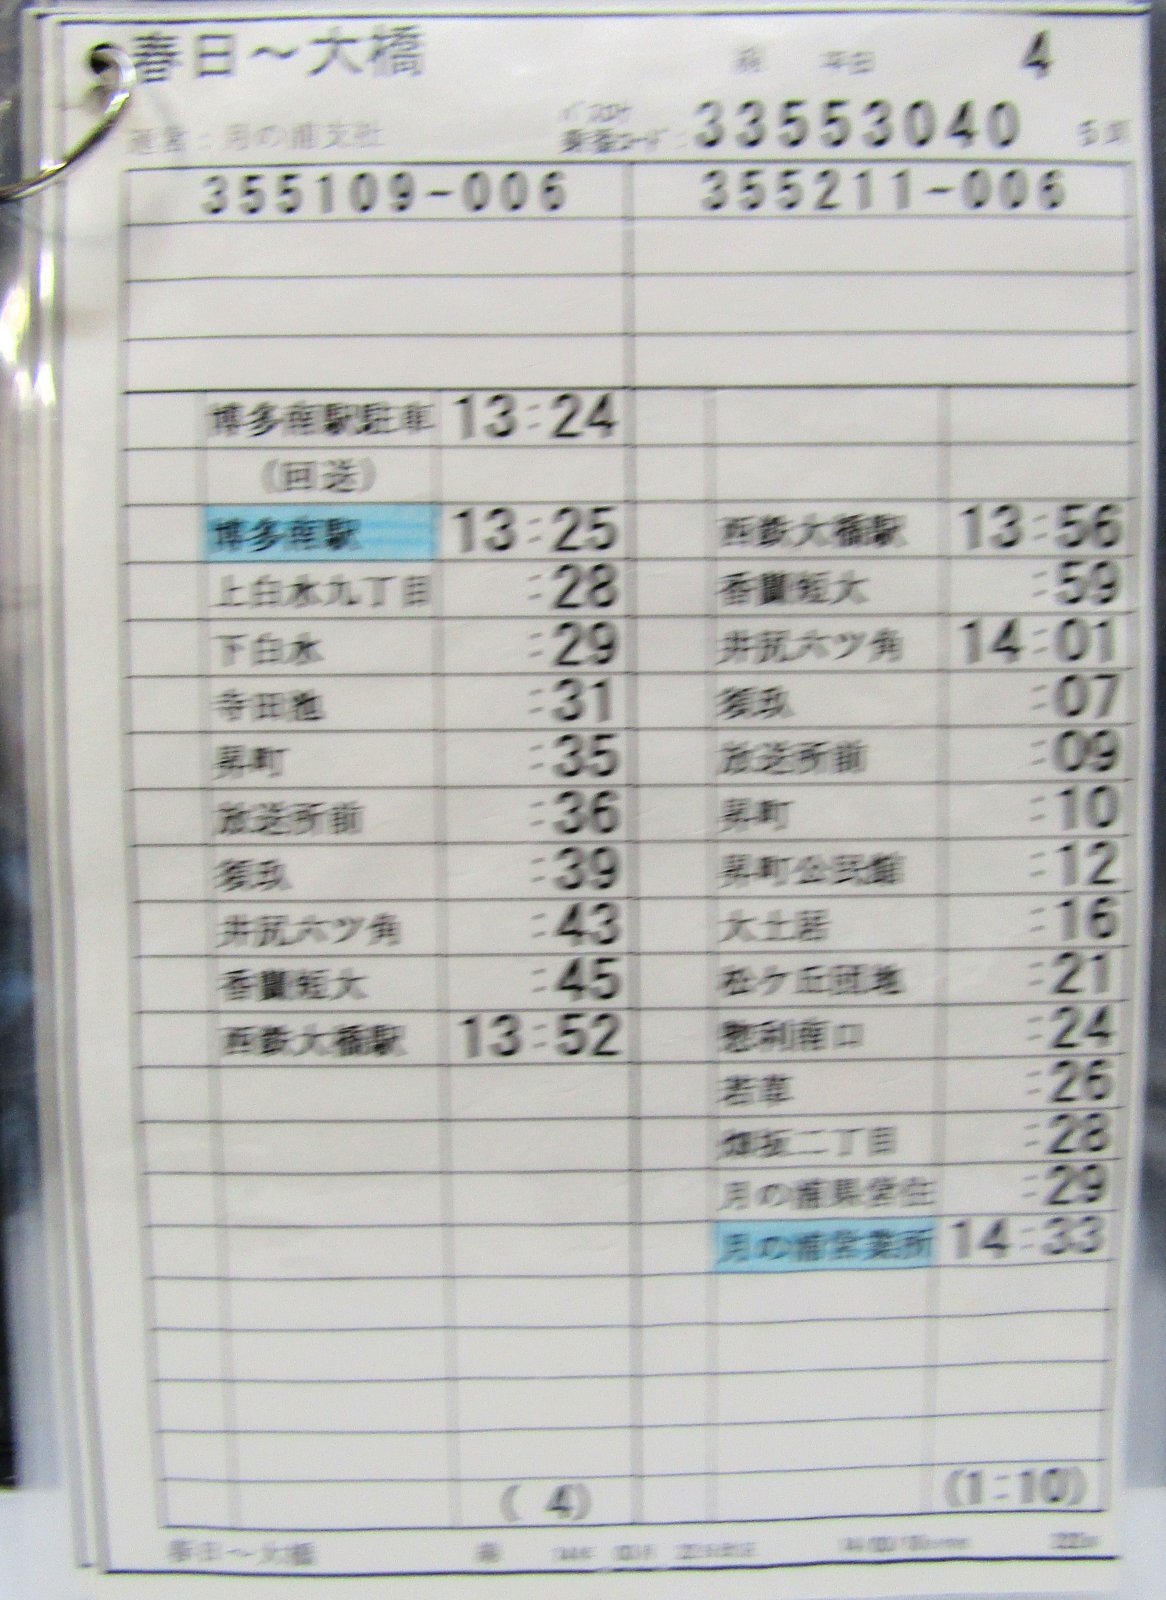 春日～大橋 平日 4
運営：月の浦支社 乗務コード：33553040
355109-006 355211-006
博多南駅駐車 13:24
(回送)
博多南駅 13:25 西鉄大橋駅 13:56
上白水九丁目 :28 香蘭短大 :59
下白水 :29 井尻六ツ角 14:01
寺田池 :31 須玖 :07
昇町 :35 放送所前 :09
放送所前 :36 昇町 :10
須玖 :39 昇町公民館 :12
井尻六ツ角 :43 大土居 :16
香蘭短大 :45 松ケ丘団地 :21
西鉄大橋駅 13:52 惣利南口 :24
若草 :26
畑坂二丁目 :28
月の浦県営住 :29
月の浦営業所 14:33
( 4) (1:10)
春日～大橋